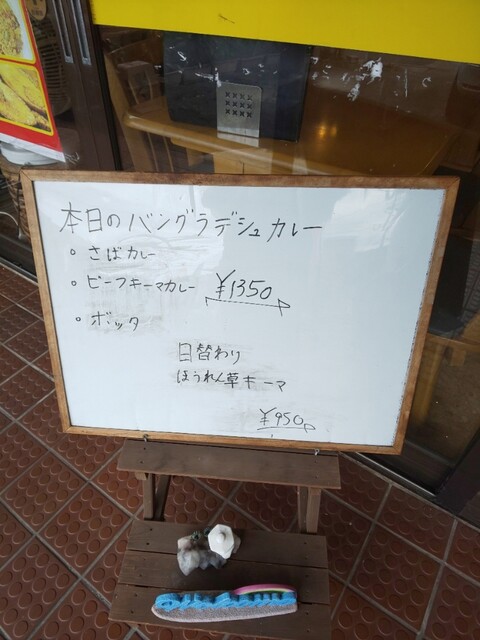 本日のバングラデシュカレー
• さばカレー
• ビーフキーマカレー ¥1350
• ボッタ
日替わり
ほうれん草キーマ
¥950